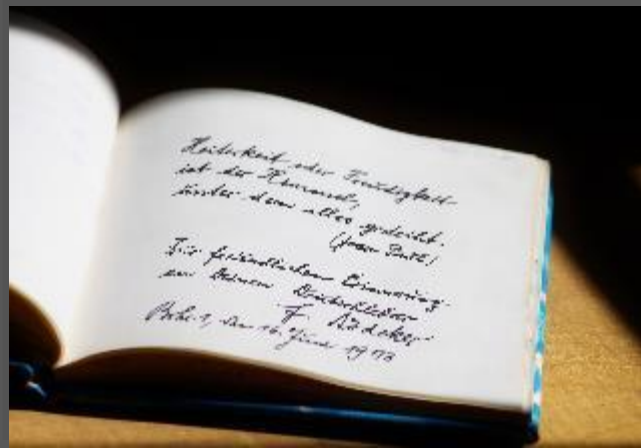 Heiterkeit oder Freudigkeit
ist der Himmel,
unter dem alles gedeiht.
(Jean Paul)
Zur freundlichen Erinnerung
an Deinen
F.
den 16. Juni 1978